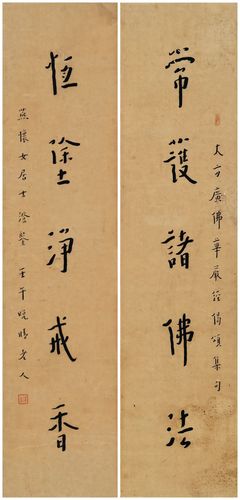 大方广佛華嚴經偈頌集句
常護諸佛法
恆塗淨戒香
燕懷女居士澄鑒 壬午晚晴老人